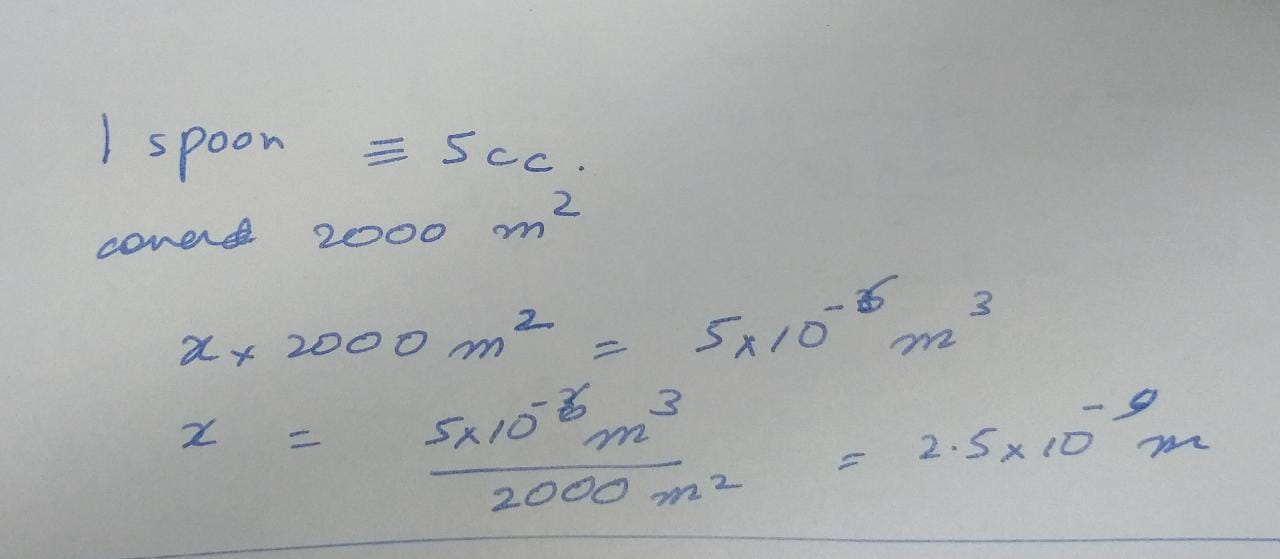 1 spoon ≡ 5 cc.
covers 2000 m²
x × 2000 m² = 5×10⁻⁶ m³
x = 5×10⁻⁶ m³ / 2000 m² = 2.5×10⁻⁹ m